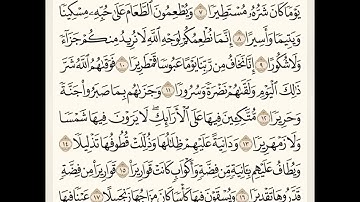 يَوْمًا كَانَ شَرُّهُۥ مُسْتَطِيرًا ٧ وَيُطْعِمُونَ ٱلطَّعَامَ عَلَىٰ حُبِّهِۦ مِسْكِينًا
وَيَتِيمًا وَأَسِيرًا ٨ إِنَّمَا نُطْعِمُكُمْ لِوَجْهِ ٱللَّهِ لَا نُرِيدُ مِنكُمْ جَزَآءً
وَلَا شُكُورًا ٩ إِنَّا نَخَافُ مِن رَّبِّنَا يَوْمًا عَبُوسًا قَمْطَرِيرًا ١٠ فَوَقَىٰهُمُ ٱللَّهُ شَرَّ
ذَٰلِكَ ٱلْيَوْمِ وَلَقَّىٰهُمْ نَضْرَةً وَسُرُورًا ١١ وَجَزَىٰهُم بِمَا صَبَرُوا۟ جَنَّةً
وَحَرِيرًا ١٢ مُّتَّكِـِٔينَ فِيهَا عَلَى ٱلْأَرَآئِكِ ۖ لَا يَرَوْنَ فِيهَا شَمْسًا
وَلَا زَمْهَرِيرًا ١٣ وَدَانِيَةً عَلَيْهِمْ ظِلَـٰلُهَا وَذُلِّلَتْ قُطُوفُهَا تَذْلِيلًا ١٤
وَيُطَافُ عَلَيْهِم بِـَٔانِيَةٍ مِّن فِضَّةٍ وَأَكْوَابٍ كَانَتْ قَوَارِيرَا۠ ١٥ قَوَارِيرَا۟ مِن فِضَّةٍ
قَدَّرُوهَا تَقْدِيرًا ١٦ وَيُسْقَوْنَ فِيهَا كَأْسًا كَانَ مِزَاجُهَا زَنجَبِيلًا ١٧ عَيْنًا فِيهَا